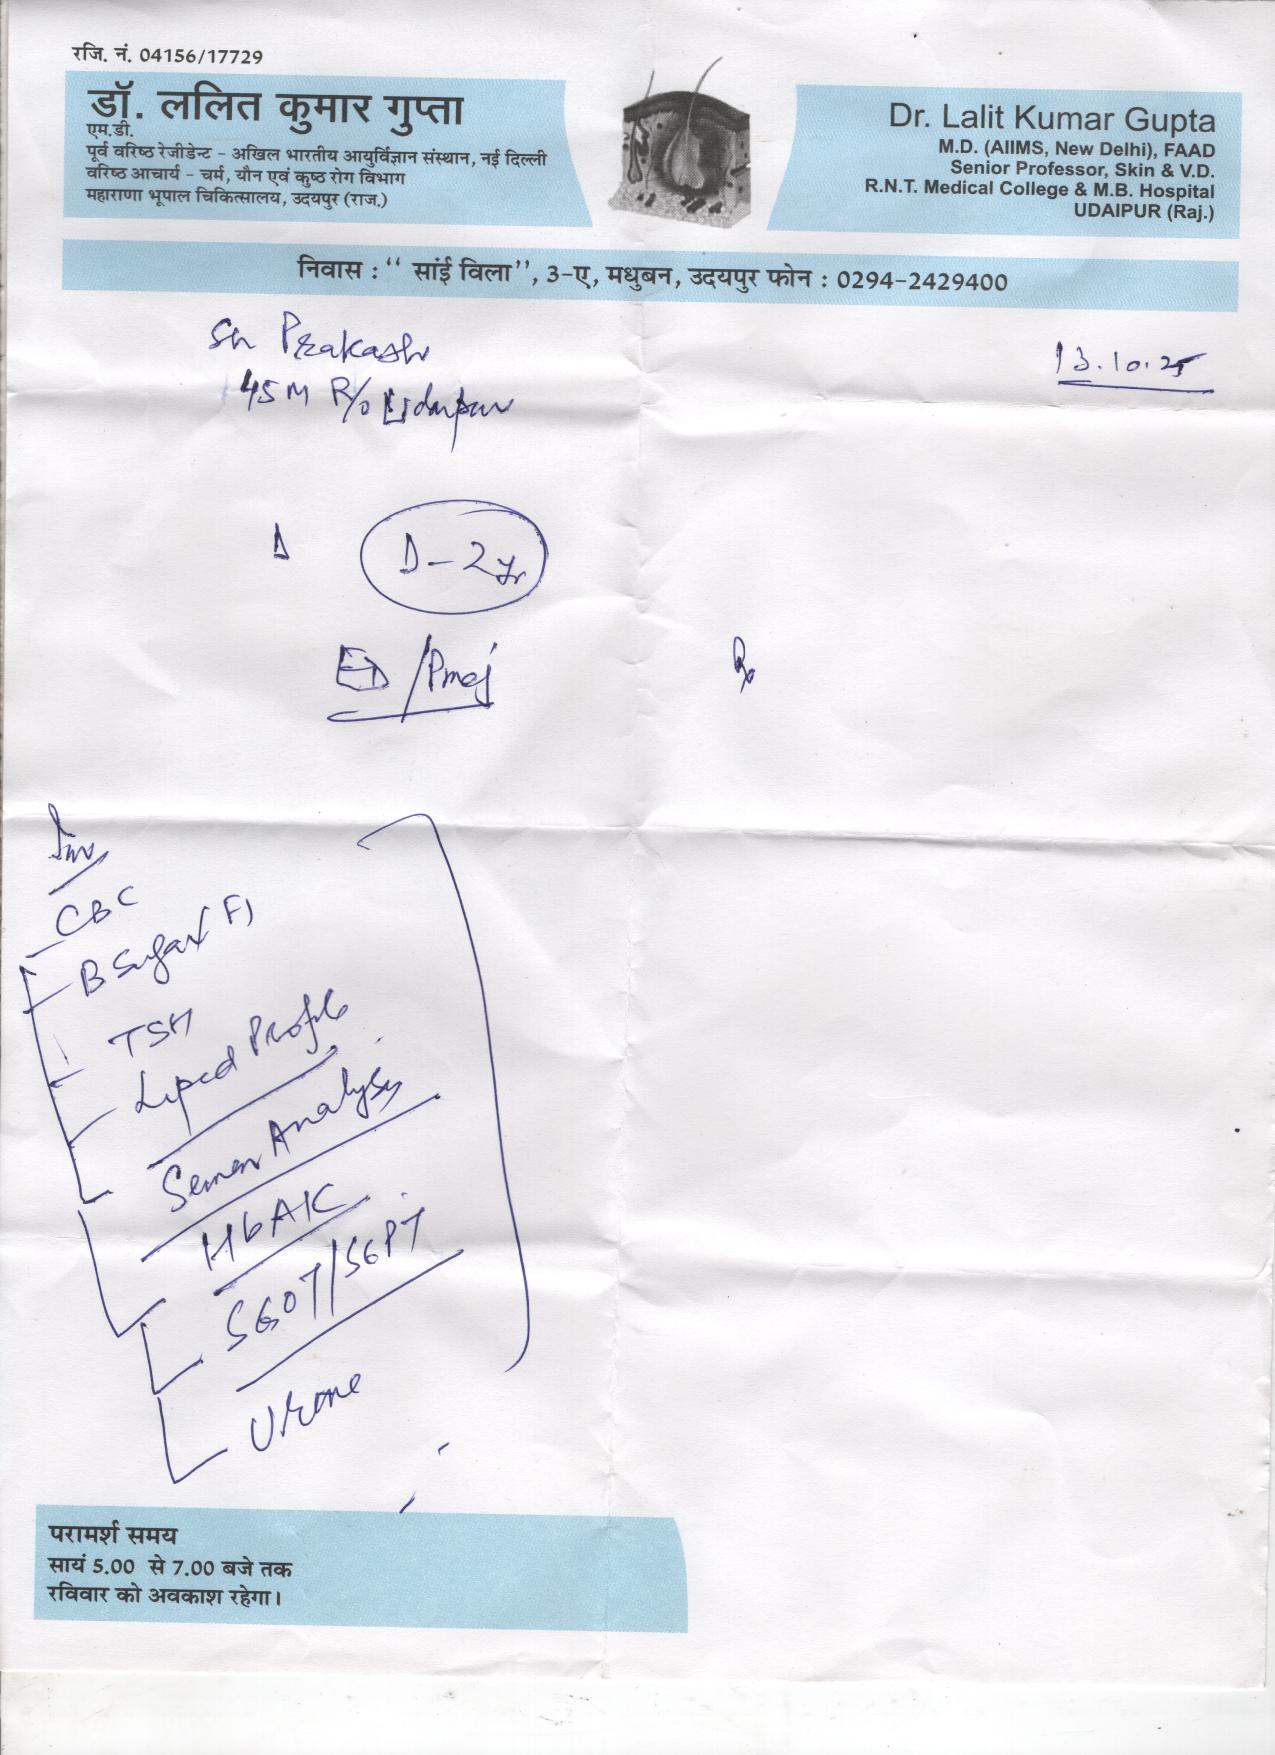 रजि. नं. 04156/17729
डॉ. ललित कुमार गुप्ता
एम.डी.
पूर्व वरिष्ठ रेजीडेन्ट - अखिल भारतीय आयुर्विज्ञान संस्थान, नई दिल्ली
वरिष्ठ आचार्य - चर्म, यौन एवं कुष्ठ रोग विभाग
महाराणा भूपाल चिकित्सालय, उदयपुर (राज.)
Dr. Lalit Kumar Gupta
M.D. (AIIMS, New Delhi), FAAD
Senior Professor, Skin & V.D.
R.N.T. Medical College & M.B. Hospital
UDAIPUR (Raj.)
निवास : "सांई विला", 3-ए, मधुबन, उदयपुर फोन : 0294-2429400
Sh Prakash
13.10.25
45 M R/o Udaipur
D - 2 yr
ED /Pmej
Rx
Inv
CBC
B Sugar (F)
TSH
Lipid Profile
Semen Analysis
HbA1C
SGOT/SGPT
Urine
परामर्श समय
सायं 5.00 से 7.00 बजे तक
रविवार को अवकाश रहेगा।